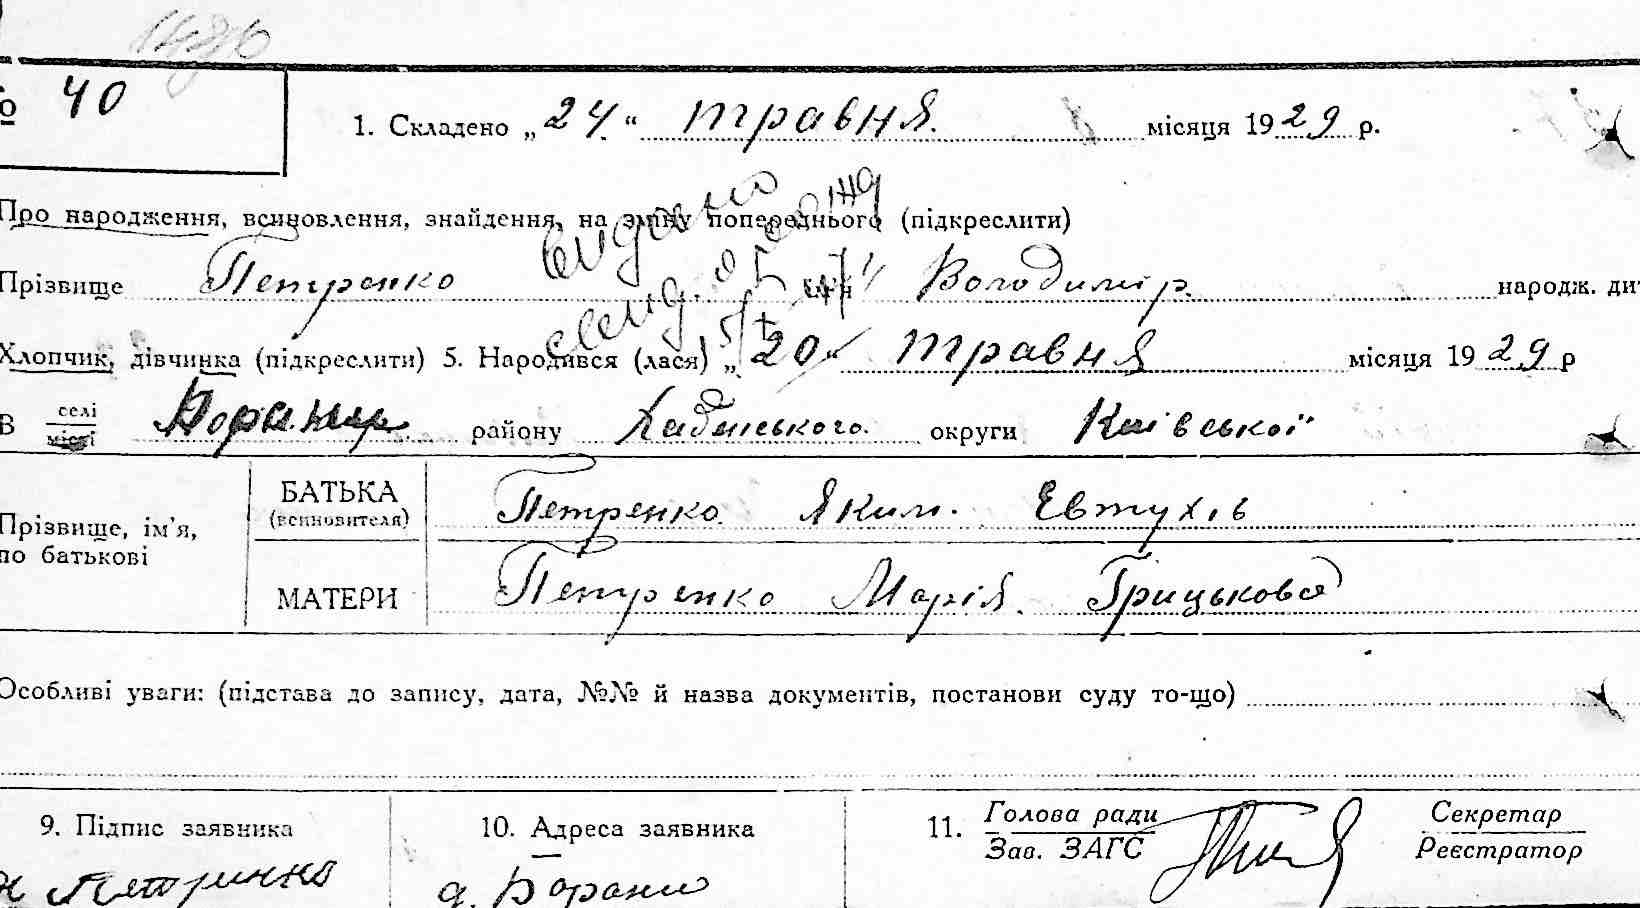 1486
№ 40
1. Складено „24“ травня місяця 1929 р.
Про народження, всиновлення, знайдення, на зміну попереднього (підкреслити)
видано
свид.
Прізвище Петренко ім'я Володимір народж. дит
Хлопчик, дівчинка (підкреслити) 5. Народився (лася) „20“ травня місяця 1929 р
В селі місті району округи Київської
Прізвище, ім'я, по батькові
БАТЬКА (всиновителя) Петренко Яким. Евтухів
МАТЕРИ Петренко Марія. Грицькова
Особливі уваги: (підстава до запису, дата, №№ й назва документів, постанови суду то-що)
9. Підпис заявника
10. Адреса заявника
11. Голова ради Секретар
Зав. ЗАГС Реєстратор